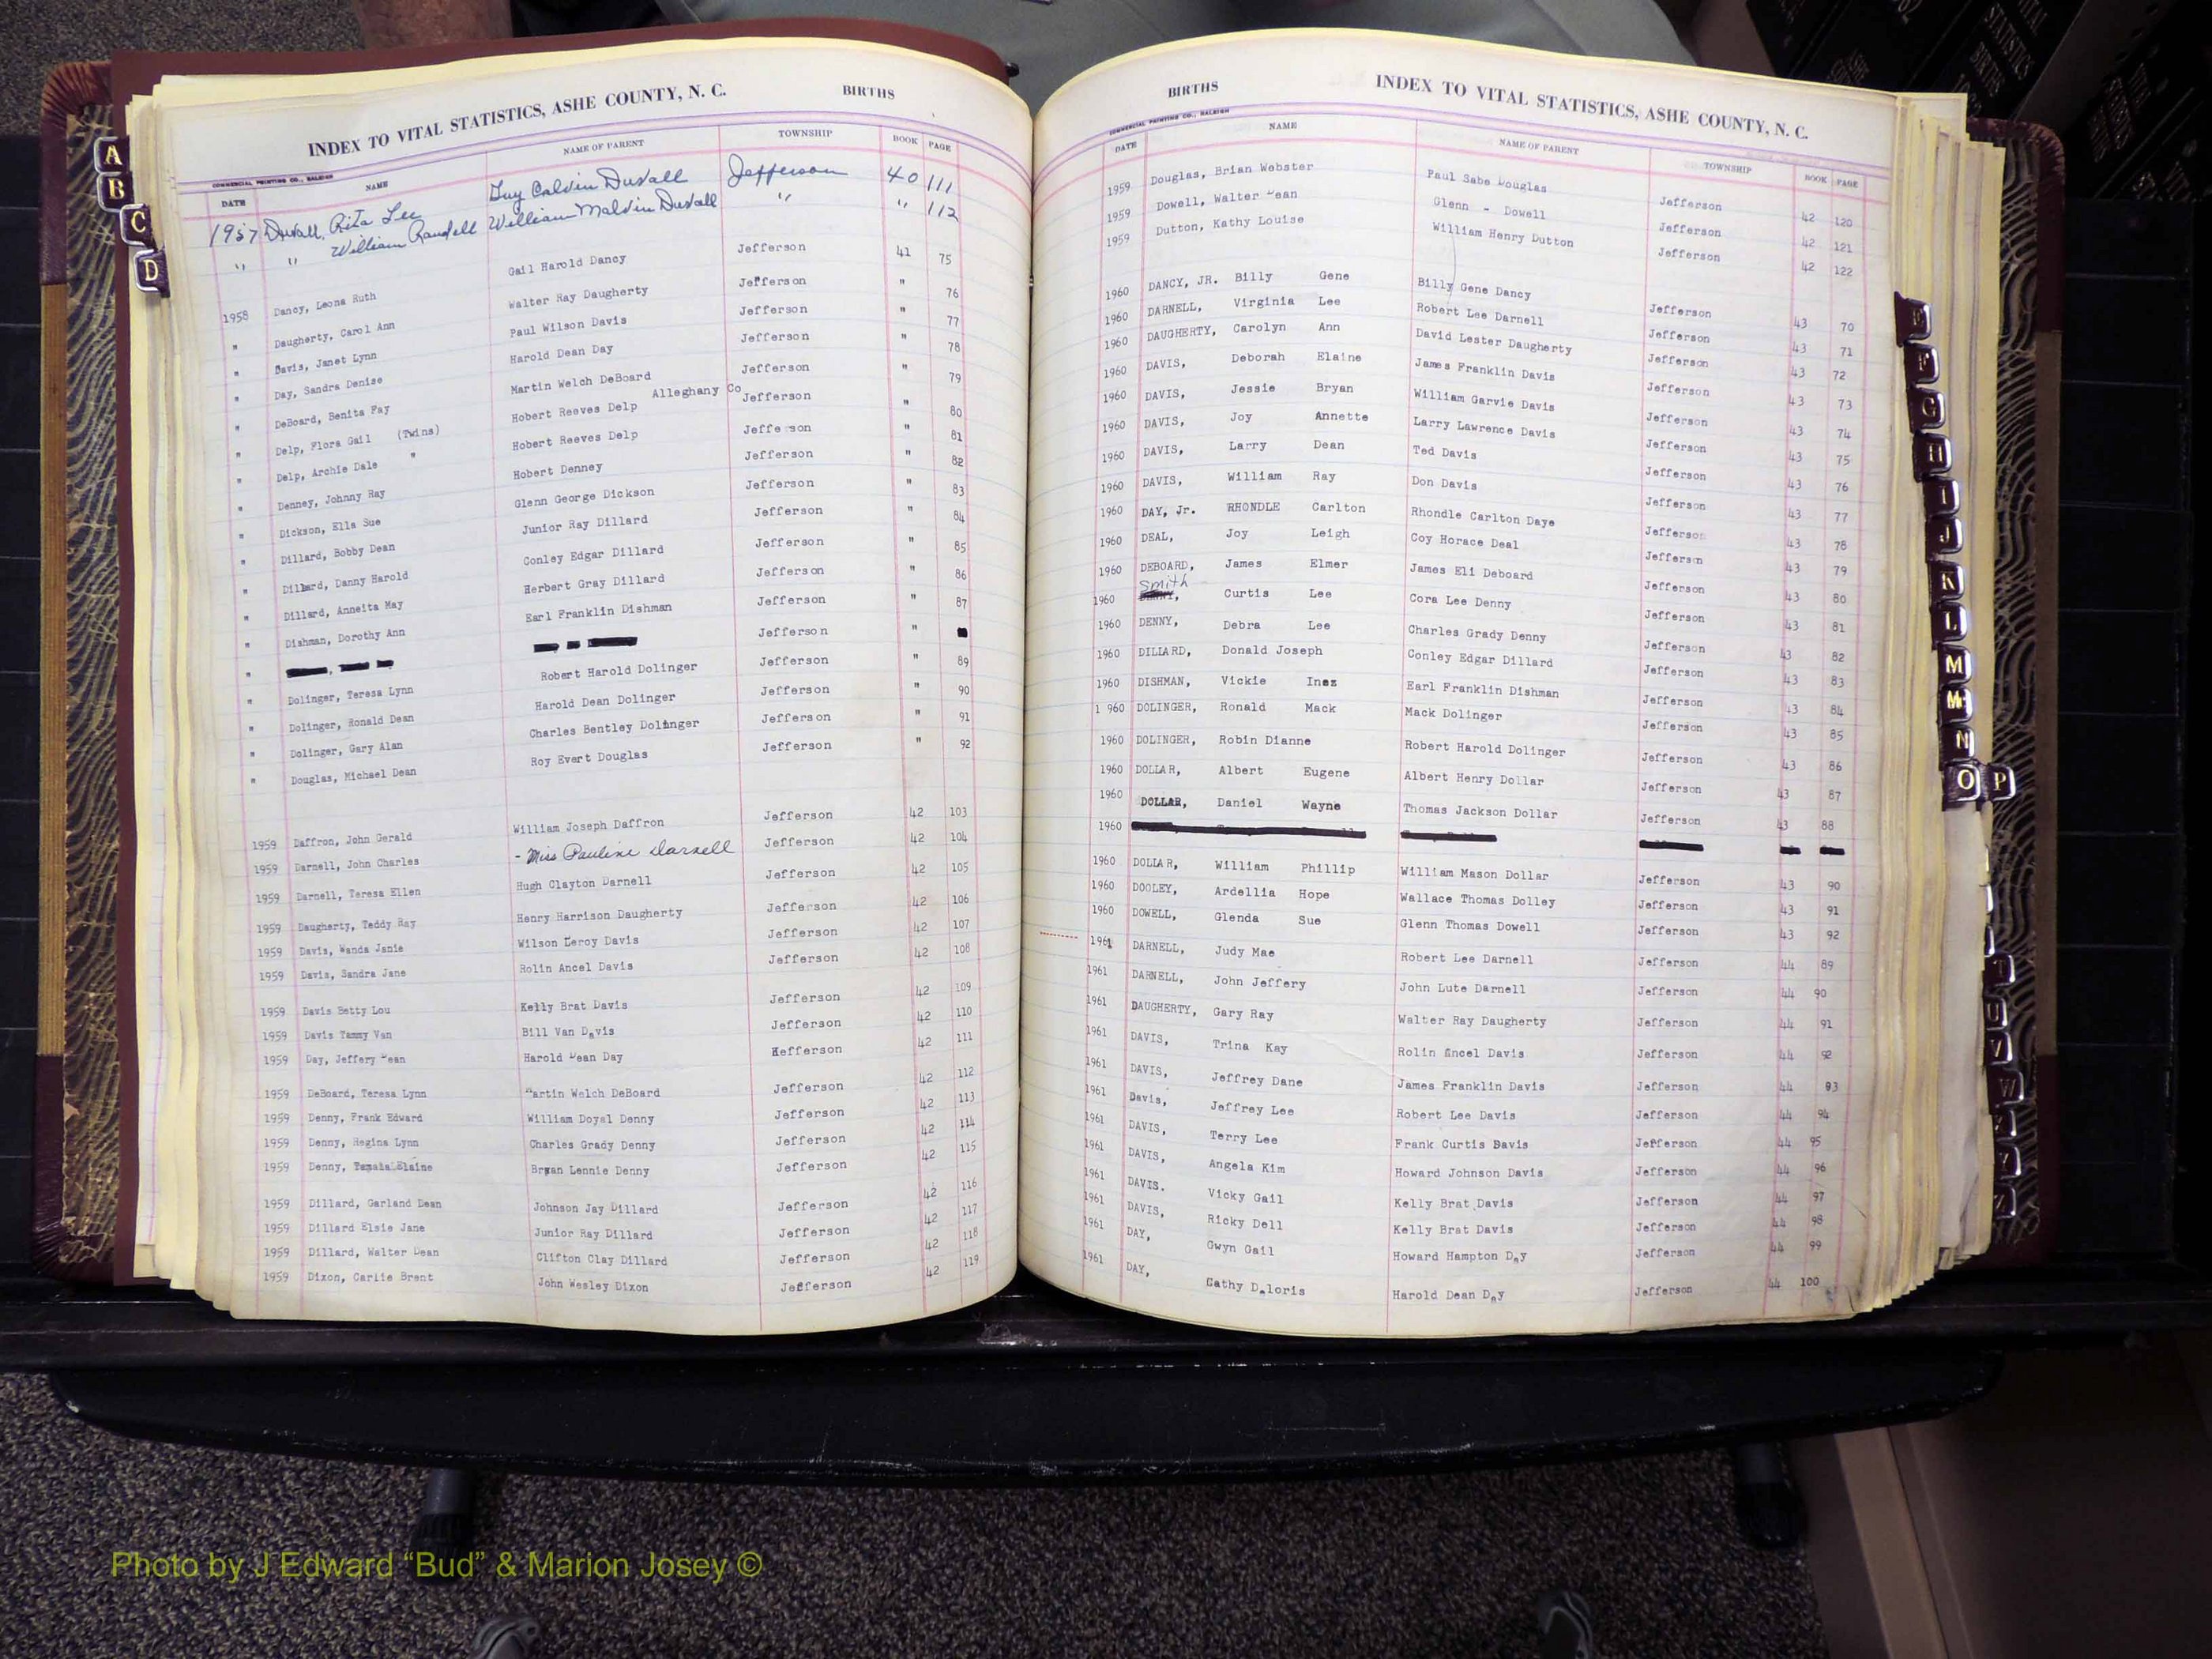 INDEX TO VITAL STATISTICS, ASHE COUNTY, N. C. BIRTHS
COMMERCIAL PRINTING CO., RALEIGH
DATE NAME NAME OF PARENT TOWNSHIP BOOK PAGE
1957 Duvall, Rita Lee Guy Calvin Duvall Jefferson 40 111
" " William Randell William Malvin Duvall " " 112
1958 Dancy, Leona Ruth Gail Harold Dancy Jefferson 41 75
" Daugherty, Carol Ann Walter Ray Daugherty Jefferson " 76
" Davis, Janet Lynn Paul Wilson Davis Jefferson " 77
" Day, Sandra Denise Harold Dean Day Jefferson " 78
" DeBoard, Benita Fay Martin Welch DeBoard Jefferson " 79
" Delp, Flora Gail (Twins) Hobert Reeves Delp Alleghany Co Jefferson " 80
" Delp, Archie Dale " Hobert Reeves Delp Jeffe son " 81
" Denney, Johnny Ray Hobert Denney Jefferson " 82
" Dickson, Ella Sue Glenn George Dickson Jefferson " 83
" Dillard, Bobby Dean Junior Ray Dillard Jefferson " 84
" Dillard, Danny Harold Conley Edgar Dillard Jefferson " 85
" Dillard, Anneita May Herbert Gray Dillard Jefferson " 86
" Dishman, Dorothy Ann Earl Franklin Dishman Jefferson " 87
" Jefferson "
" Dolinger, Teresa Lynn Robert Harold Dolinger Jefferson " 89
" Dolinger, Ronald Dean Harold Dean Dolinger Jefferson " 90
" Dolinger, Gary Alan Charles Bentley Dolinger Jefferson " 91
" Douglas, Michael Dean Roy Evert Douglas Jefferson " 92
1959 Daffron, John Gerald William Joseph Daffron Jefferson 42 103
1959 Darnell, John Charles - Miss Pauline Darnell Jefferson 42 104
1959 Darnell, Teresa Ellen Hugh Clayton Darnell Jefferson 42 105
1959 Daugherty, Teddy Ray Henry Harrison Daugherty Jefferson 42 106
1959 Davis, Wanda Janie Wilson Leroy Davis Jefferson 42 107
1959 Davis, Sandra Jane Rolin Ancel Davis Jefferson 42 108
1959 Davis Betty Lou Kelly Brat Davis Jefferson 42 109
1959 Davis Tammy Van Bill Van Davis Jefferson 42 110
1959 Day, Jeffery Dean Harold Dean Day Hefferson 42 111
1959 DeBoard, Teresa Lynn Martin Welch DeBoard Jefferson 42 112
1959 Denny, Frank Edward William Doyal Denny Jefferson 42 113
1959 Denny, Regina Lynn Charles Grady Denny Jefferson 42 114
1959 Denny, Elaine Bryan Lennie Denny Jefferson 42 115
1959 Dillard, Garland Dean Johnson Jay Dillard Jefferson 42 116
1959 Dillard Elsie Jane Junior Ray Dillard Jefferson 42 117
1959 Dillard, Walter Dean Clifton Clay Dillard Jefferson 42 118
1959 Dixon, Carlie Brent John Wesley Dixon Jefferson 42 119
BIRTHS INDEX TO VITAL STATISTICS, ASHE COUNTY, N. C.
COMMERCIAL PRINTING CO., RALEIGH
DATE NAME NAME OF PARENT TOWNSHIP BOOK PAGE
1959 Douglas, Brian Webster Paul Sabe Douglas Jefferson 42 120
1959 Dowell, Walter Dean Glenn - Dowell Jefferson 42 121
1959 Dutton, Kathy Louise William Henry Dutton Jefferson 42 122
1960 DANCY, JR. Billy Gene Billy Gene Dancy Jefferson 43 70
1960 DARNELL, Virginia Lee Robert Lee Darnell Jefferson 43 71
1960 DAUGHERTY, Carolyn Ann David Lester Daugherty Jefferson 43 72
1960 DAVIS, Deborah Elaine James Franklin Davis Jefferson 43 73
1960 DAVIS, Jessie Bryan William Garvie Davis Jefferson 43 74
1960 DAVIS, Joy Annette Larry Lawrence Davis Jefferson 43 75
1960 DAVIS, Larry Dean Ted Davis Jefferson 43 76
1960 DAVIS, William Ray Don Davis Jefferson 43 77
1960 DAY, Jr. RHONDLE Carlton Rhondle Carlton Daye Jefferson 43 78
1960 DEAL, Joy Leigh Coy Horace Deal Jefferson 43 79
1960 DEBOARD, James Elmer James Eli Deboard Jefferson 43 80
1960 Smith Curtis Lee Cora Lee Denny Jefferson 43 81
1960 DENNY, Debra Lee Charles Grady Denny Jefferson 43 82
1960 DILLARD, Donald Joseph Conley Edgar Dillard Jefferson 43 83
1960 DISHMAN, Vickie Inez Earl Franklin Dishman Jefferson 43 84
1 960 DOLINGER, Ronald Mack Mack Dolinger Jefferson 43 85
1960 DOLINGER, Robin Dianne Robert Harold Dolinger Jefferson 43 86
1960 DOLLAR, Albert Eugene Albert Henry Dollar Jefferson 43 87
1960 DOLLAR, Daniel Wayne Thomas Jackson Dollar Jefferson 43 88
1960
1960 DOLLAR, William Phillip William Mason Dollar Jefferson 43 90
1960 DOOLEY, Ardellia Hope Wallace Thomas Dolley Jefferson 43 91
1960 DOWELL, Glenda Sue Glenn Thomas Dowell Jefferson 43 92
1961 DARNELL, Judy Mae Robert Lee Darnell Jefferson 44 89
1961 DARNELL, John Jeffery John Lute Darnell Jefferson 44 90
1961 DAUGHERTY, Gary Ray Walter Ray Daugherty Jefferson 44 91
1961 DAVIS, Trina Kay Rolin Ancel Davis Jefferson 44 92
1961 DAVIS, Jeffrey Dane James Franklin Davis Jefferson 44 93
1961 Davis, Jeffrey Lee Robert Lee Davis Jefferson 44 94
1961 DAVIS, Terry Lee Frank Curtis Davis Jefferson 44 95
1961 DAVIS, Angela Kim Howard Johnson Davis Jefferson 44 96
1961 DAVIS. Vicky Gail Kelly Brat Davis Jefferson 44 97
1961 DAVIS, Ricky Dell Kelly Brat Davis Jefferson 44 98
1961 DAY, Gwyn Gail Howard Hampton Day Jefferson 44 99
1961 DAY, Cathy Daloris Harold Dean Day Jefferson 44 100
A
B
C
D
E
F
G
H
I
J
K
L
M
Mc
N
O P
T
U
V
W
VITAL STATISTICS BIRTHS
Photo by J Edward “Bud” & Marion Josey ©